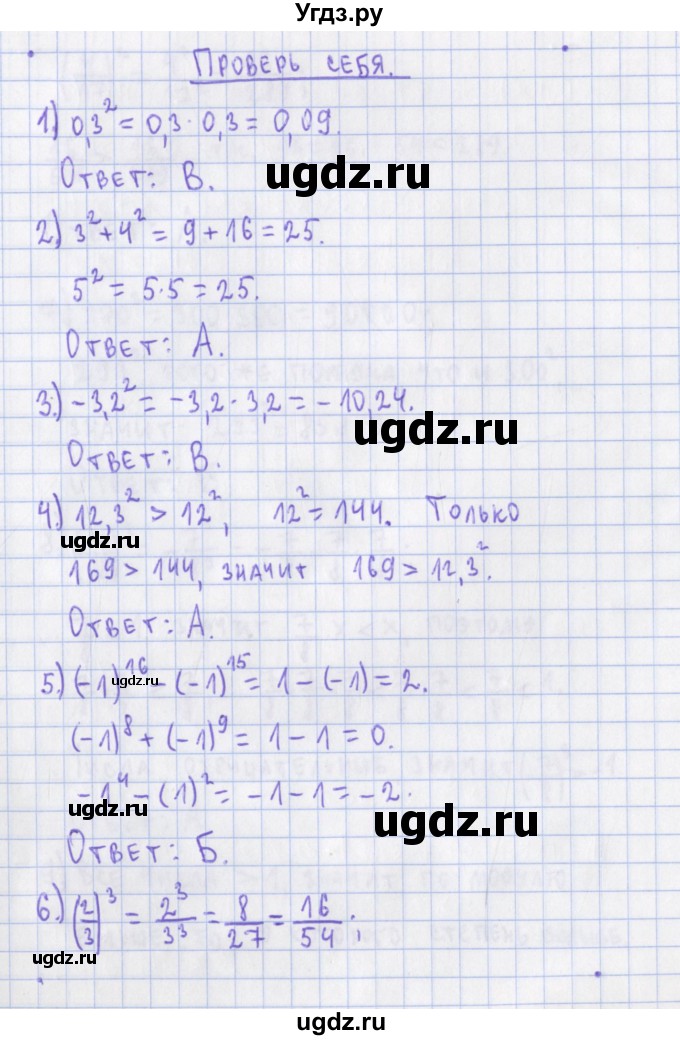 Угдз.ру
ПРОВЕРЬ СЕБЯ.
1) 0,3² = 0,3 · 0,3 = 0,09.
ОТВЕТ: В.
ugdz.ru
2) 3² + 4² = 9 + 16 = 25.
5² = 5 · 5 = 25.
ОТВЕТ: А.
3) −3,2² = −3,2 · 3,2 = −10,24.
ugdz.ru
ОТВЕТ: В.
4) 12,3² > 12², 12² = 144. ТОЛЬКО
ugdz.ru
169 > 144, ЗНАЧИТ 169 > 12,3².
ОТВЕТ: А.
5) (−1)¹⁶ − (−1)¹⁵ = 1 − (−1) = 2.
ugdz.ru
(−1)⁸ + (−1)⁹ = 1 − 1 = 0.
−1⁴ − (1)² = −1 − 1 = −2.
ugdz.ru
ugdz.ru
ОТВЕТ: Б.
6) (2/3)³ = 2³/3³ = 8/27 = 16/54;
ugdz.ru
ugdz.ru